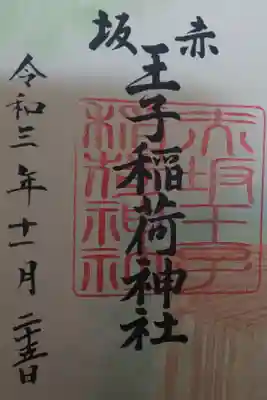 赤坂
王子稲荷神社
赤坂王子
稲荷神社
令和三年十一月二十五日